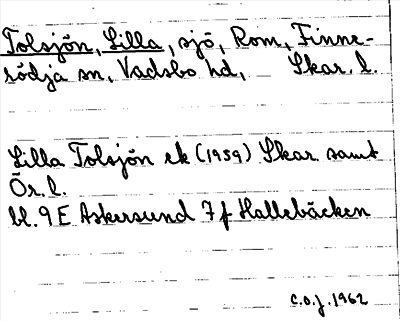 Tolsjön, Lilla, sjö, Rom, Finne-
rödja sn, Vadsbo hd, Skar. l.
Lilla Tolsjön ek (1959) Skar. samt
Ör. l.
bl. 9 E Askersund 7 f Hallebäcken
C.O.J. 1962